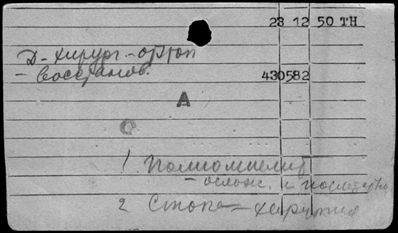 23 12 50 TH
Д-хирург-ортоп
- восстанов.
430582
А
С
1 Полиомиелит
- ослож. и последств.
2 Стопа - хирургия